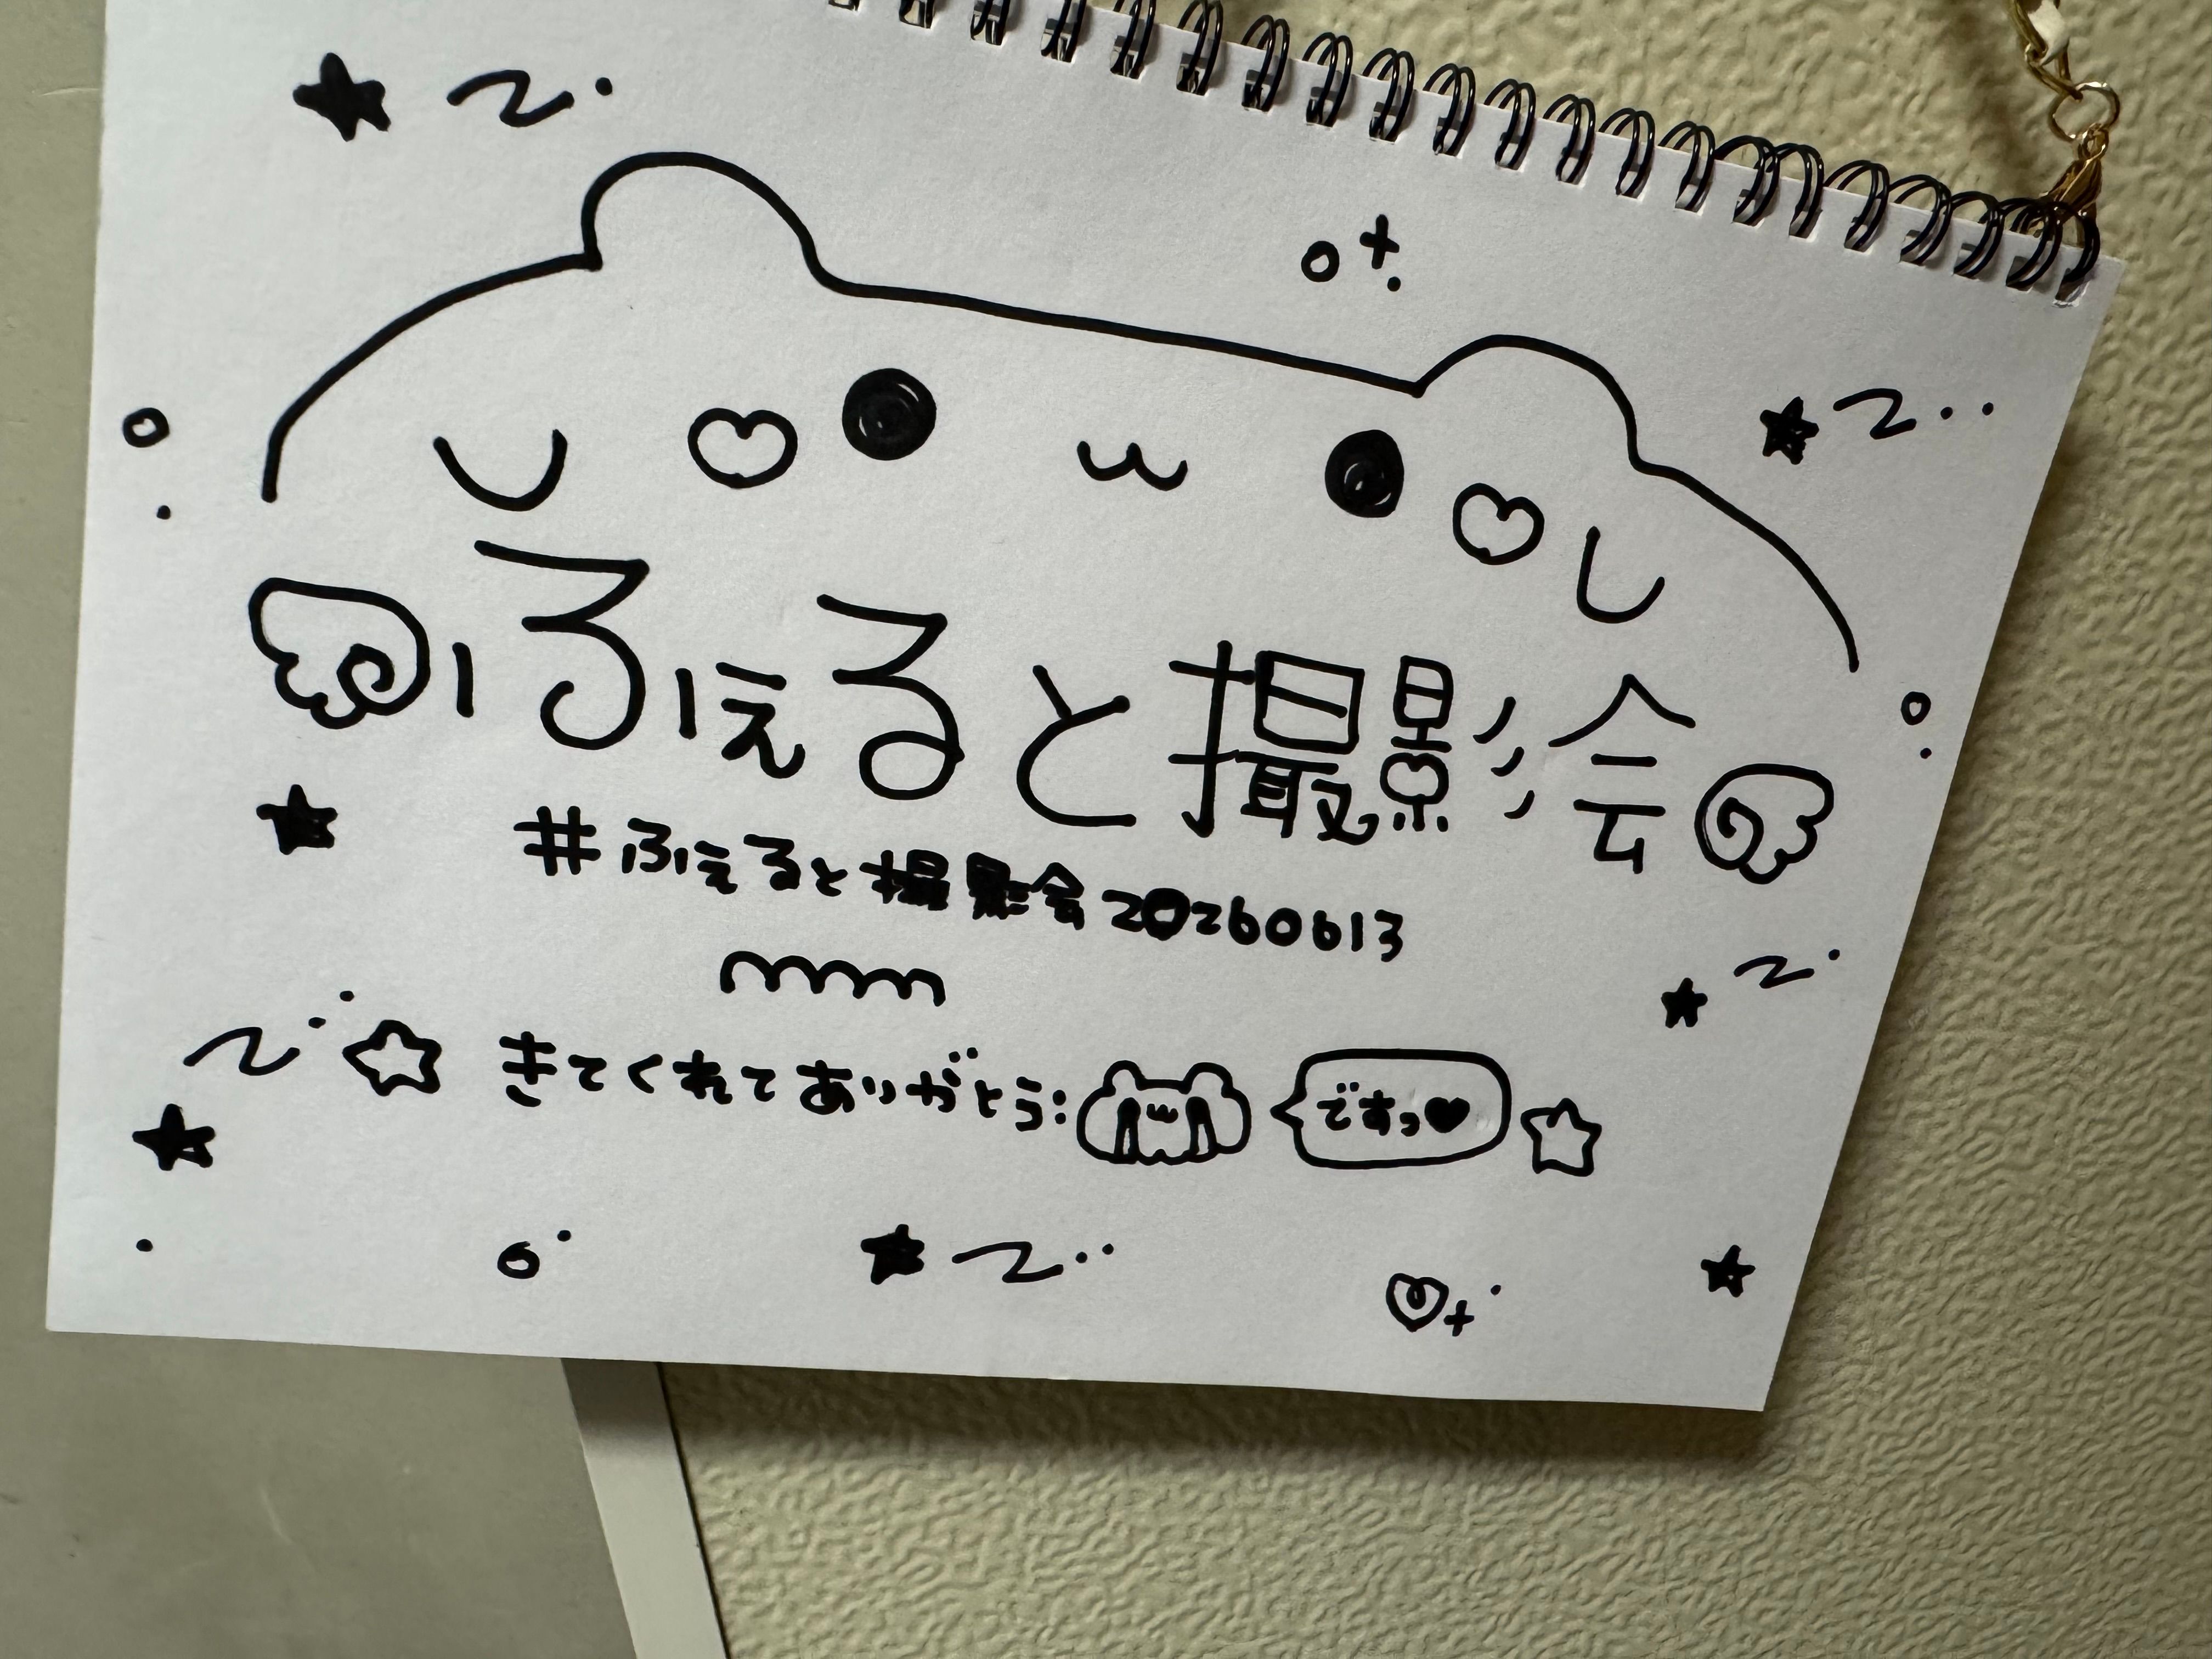 ふぇると撮影会
#ふぇると撮影会20260613
きてくれてありがとう:
ですっ♥